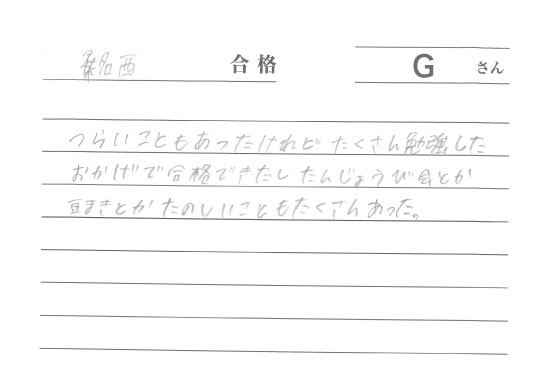 桑名西 合格 G さん
つらいこともあったけれど たくさん勉強した
おかげで合格できたし たんじょうび会とか
豆まきとか たのしいこともたくさんあった。